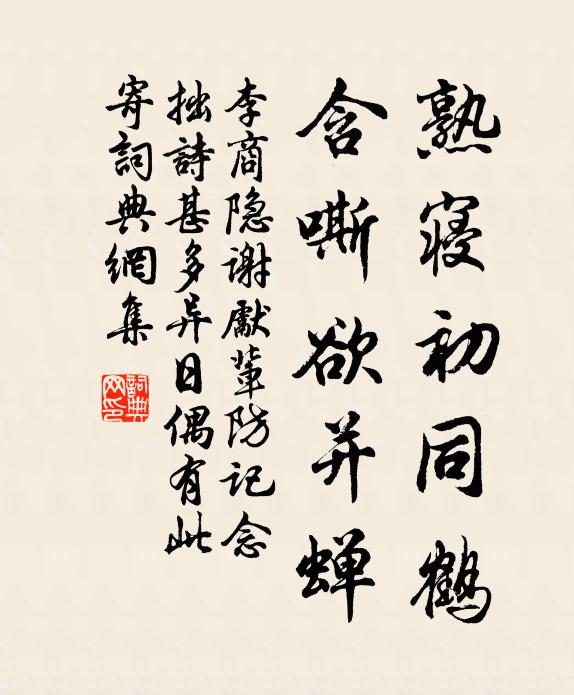 熟寝初同鹤
含嘶欲并蝉
李商隐謝獻輩防記念
拙詩甚多异日偶有此
寄詞典網集
詞典网印